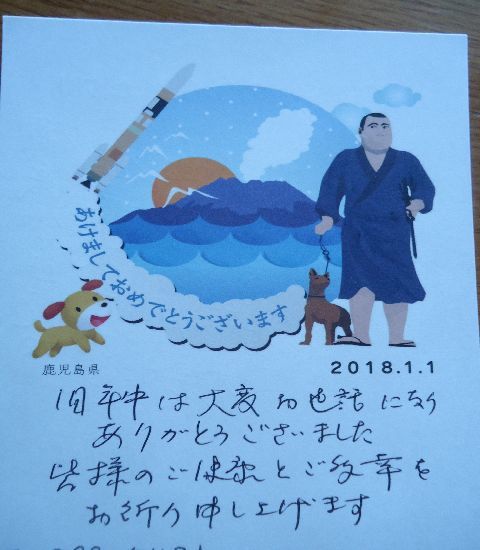 あけましておめでとうございます
鹿児島県
2018.1.1
旧年中は大変お世話になり
ありがとうございました
皆様のご健康とご多幸を
お祈り申し上げます